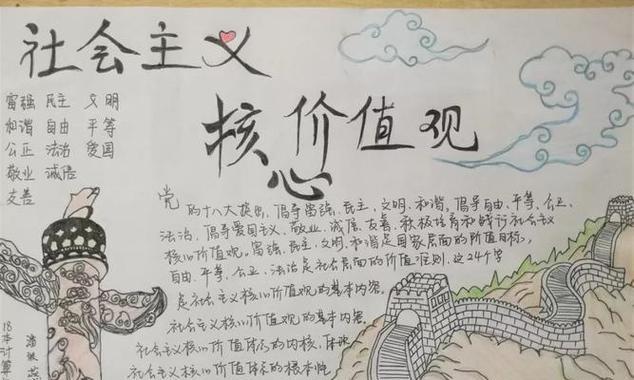 社会主义
核心价值观
富强 民主 文明
和谐 自由 平等
公正 法治 爱国
敬业 诚信
友善
党的十八大提出,倡导富强、民主、文明、和谐,倡导自由、平等、公正、
法治,倡导爱国主义、敬业、诚信、友善,积极培育和践行社会主义
核心价值观。富强、民主、文明、和谐是国家层面的价值目标,
自由、平等、公正、法治是社会层面的价值准则,这24个字
是社会主义核心价值观的基本内容。
社会主义核心价值观的基本内容
社会主义核心价值体系的内核,体现
社会主义核心价值体系的根本性
18本计算